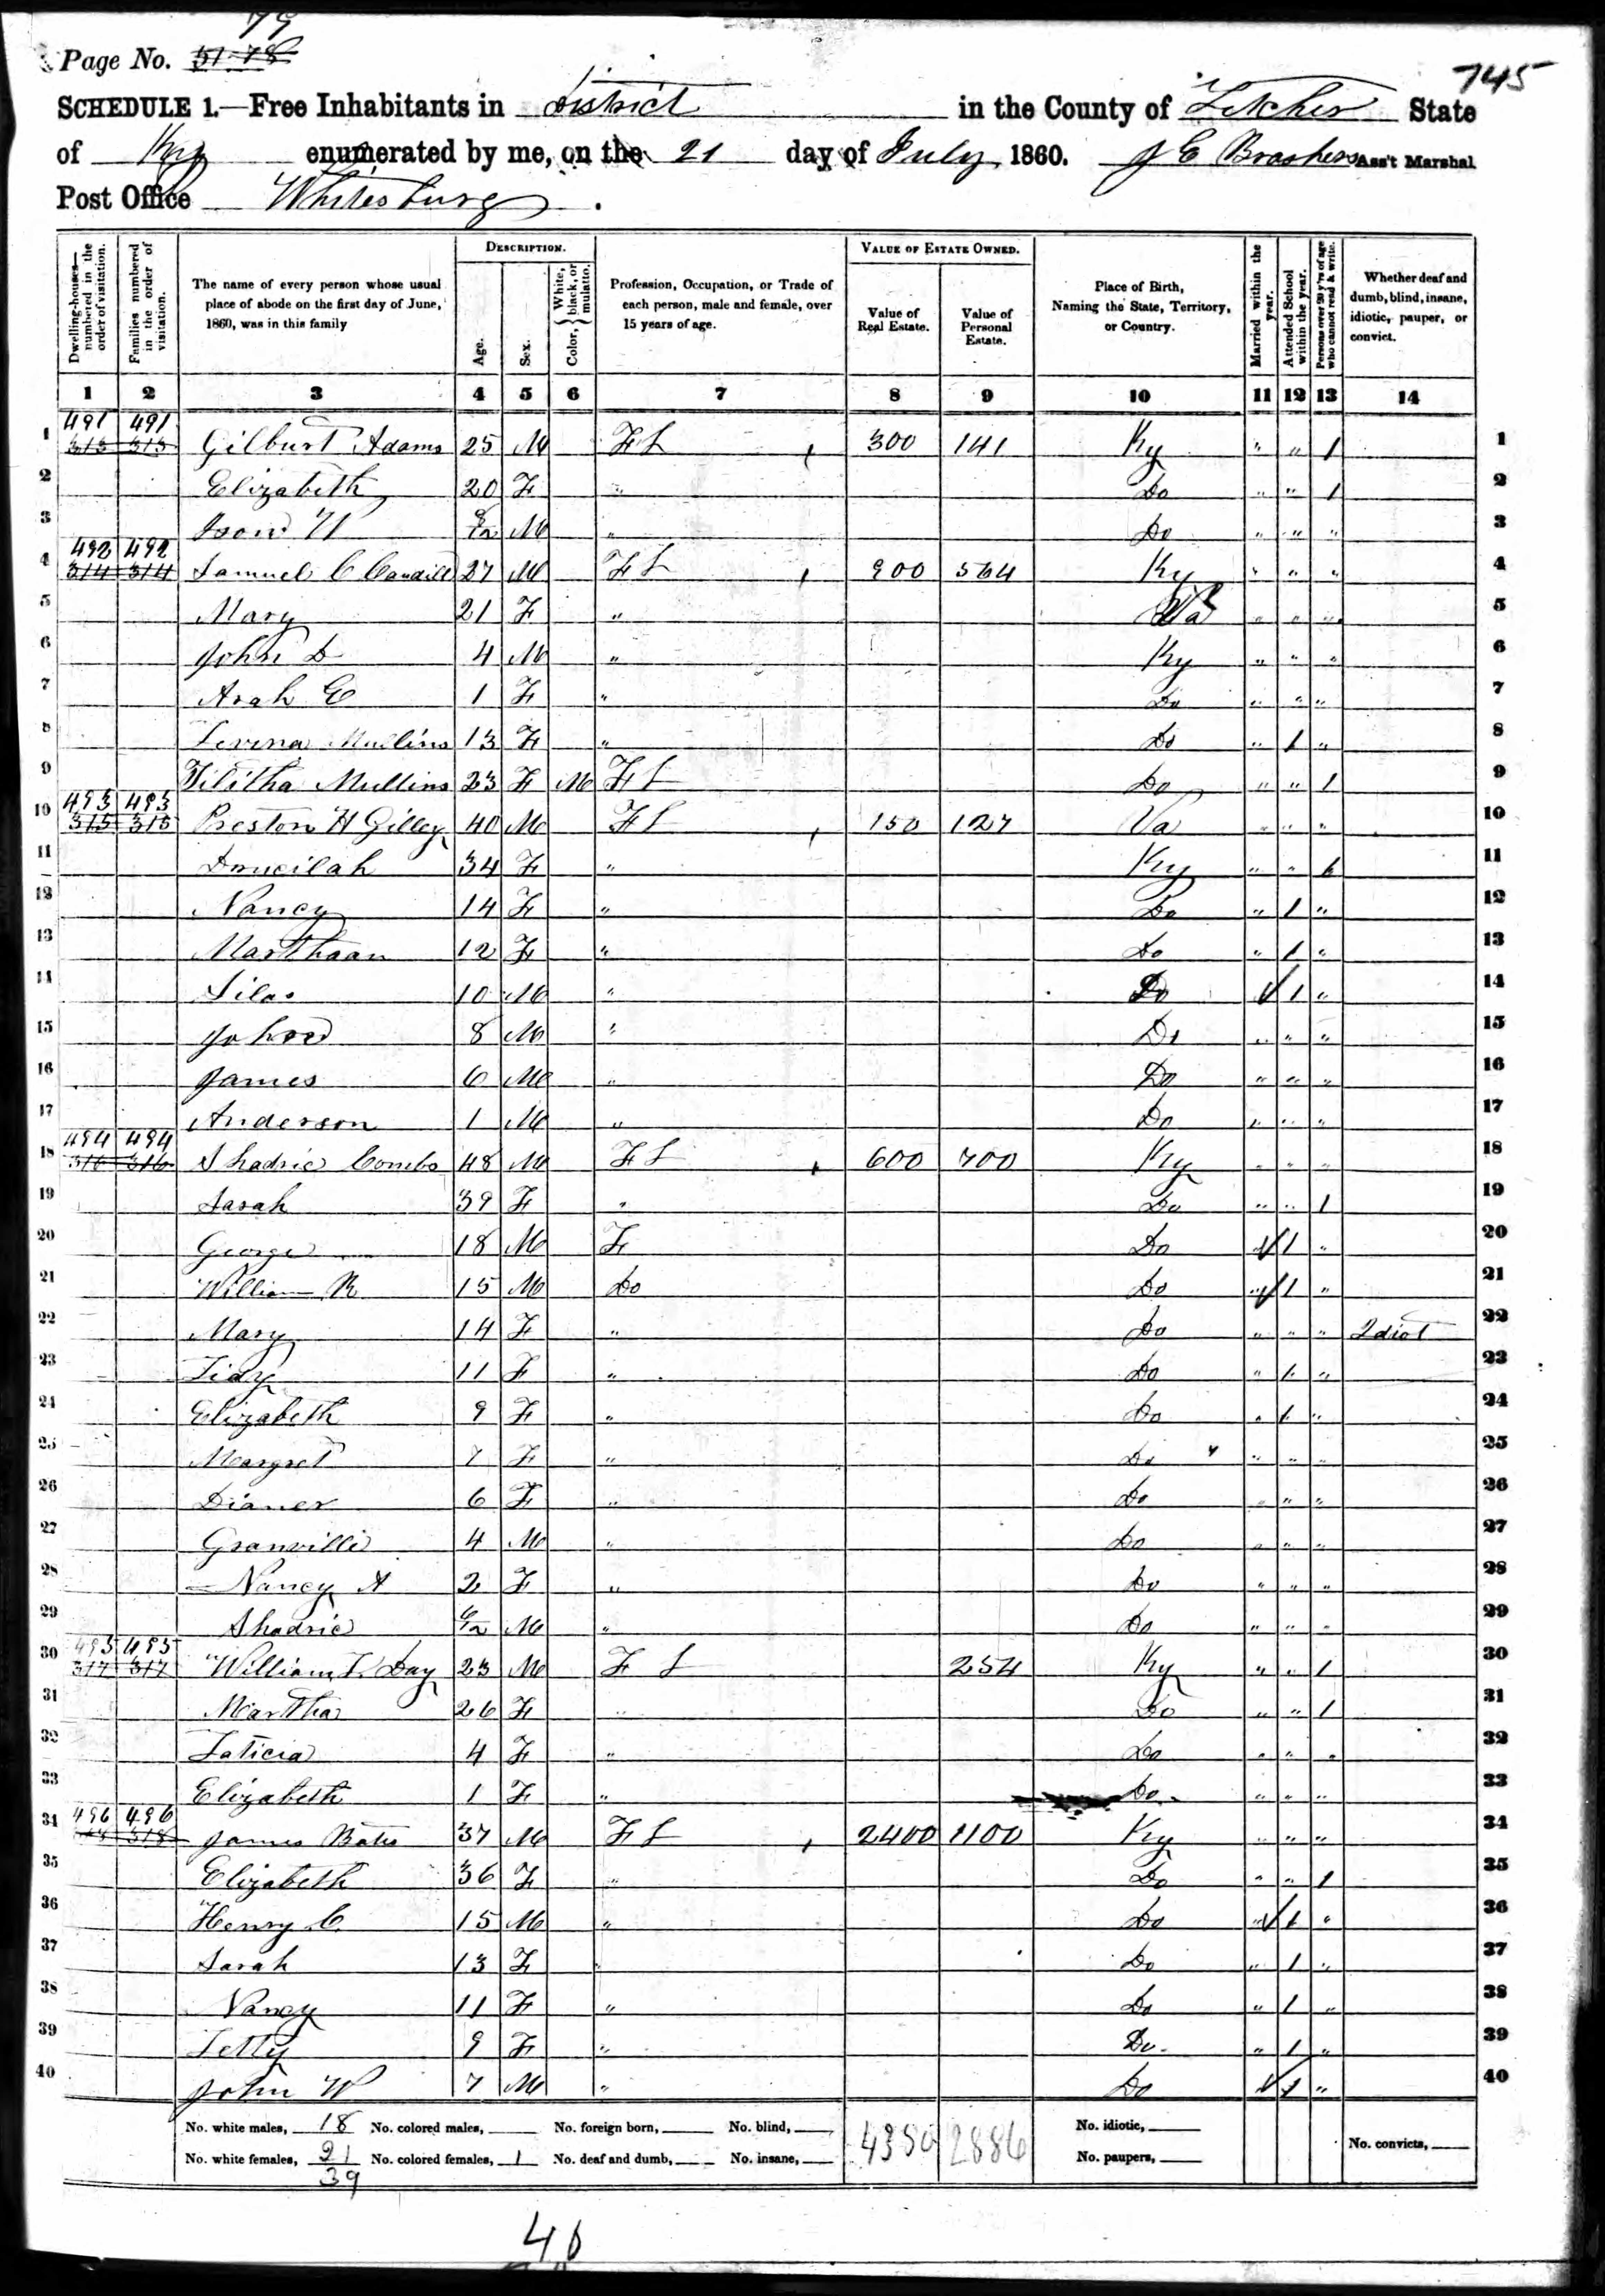 79
Page No. 51 78
745
SCHEDULE 1.—Free Inhabitants in District in the County of Letcher State
of Ky enumerated by me, on the 21 day of July 1860. J E Brashers Ass't Marshal
Post Office Whitesburg.
Dwelling-houses—numbered in the order of visitation. Families numbered in the order of visitation. The name of every person whose usual place of abode on the first day of June, 1860, was in this family DESCRIPTION. Age. Sex. Color, White, black, or mulatto. Profession, Occupation, or Trade of each person, male and female, over 15 years of age. VALUE OF ESTATE OWNED. Value of Real Estate. Value of Personal Estate. Place of Birth, Naming the State, Territory, or Country. Married within the year. Attended School within the year. Persons over 20 y'rs of age who cannot read & write. Whether deaf and dumb, blind, insane, idiotic, pauper, or convict.
1 2 3 4 5 6 7 8 9 10 11 12 13 14
491 491
1 313 313 Gilburt Adams 25 M F L 300 141 Ky " " 1 1
2 Elizabeth 20 F " Do " " 1 2
3 Ison W 9/12 M " Do " " " 3
492 492
4 314 314 Samuel C Caudill 27 M F L 900 564 Ky " " " 4
5 Mary 21 F " Va " " " 5
6 John D 4 M " Ky " " " 6
7 Arah E 1 F " Do " " " 7
8 Levina Mullins 13 F " Do " 1 " 8
9 Tilitha Mullins 23 F M F L Do " " 1 9
493 493
10 315 315 Preston H Gilley 40 M F L 150 127 Va " " " 10
11 Drucilah 34 F " Ky " " 1 11
12 Nancy 14 F " Do " 1 " 12
13 Marthaan 12 F " Do " 1 " 13
14 Silas 10 M " Do 1 " 14
15 John 8 M " Do " " " 15
16 James 6 M " Do " " " 16
17 Anderson 1 M " Do " " " 17
494 494
18 316 316 Shadric Combs 48 M F L 600 700 Ky " " " 18
19 Sarah 39 F " Do " " 1 19
20 George 18 M F Do " 1 " 20
21 William R 15 M Do Do " 1 " 21
22 Mary 14 F " Do " " " Idiot 22
23 Tidy 11 F " Do " 1 " 23
24 Elizabeth 9 F " Do " 1 " 24
25 Margret 7 F " Do " " " 25
26 Dianer 6 F " Do " " " 26
27 Granville 4 M " Do " " " 27
28 Nancy A 2 F " Do " " " 28
29 Shadric 6/12 M " Do " " " 29
495 495
30 317 317 William T. Day 23 M F L 254 Ky " " 1 30
31 Martha 26 F " Do " " 1 31
32 Laticia 4 F " Do " " " 32
33 Elizabeth 1 F " Do " " " 33
496 496
34 318 318 James Bates 37 M F L 2400 1100 Ky " " " 34
35 Elizabeth 36 F " Do " " 1 35
36 Henry C 15 M " Do " 1 " 36
37 Sarah 13 F " Do " 1 " 37
38 Nancy 11 F " Do " 1 " 38
39 Letty 9 F " Do " 1 " 39
40 John W 7 M " Do 1 " 40
No. white males, 18 No. colored males, No. foreign born, No. blind, 4350 2886 No. idiotic,
No. white females, 21 No. colored females, 1 No. deaf and dumb, No. insane, No. paupers, No. convicts,
39
40